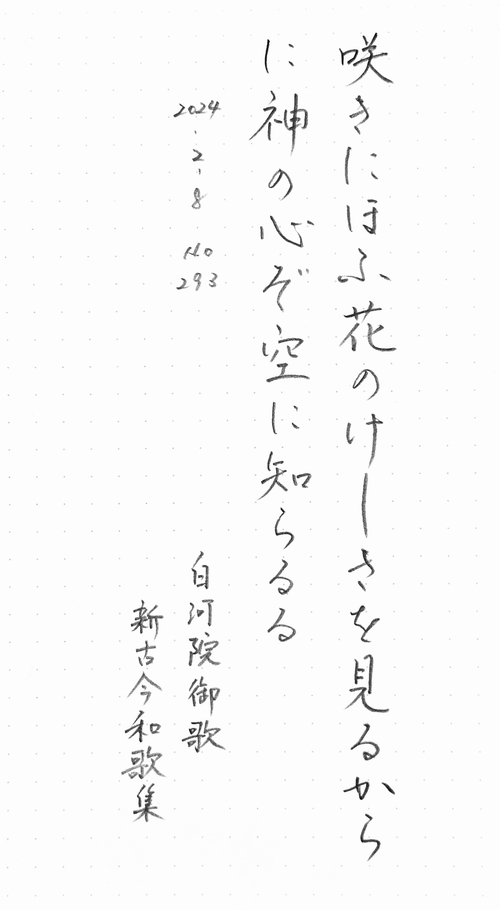 咲きにほふ花のけしきを見るから
に神の心ぞ空に知らるる
2024.2.8 No293
白河院御歌
新古今和歌集